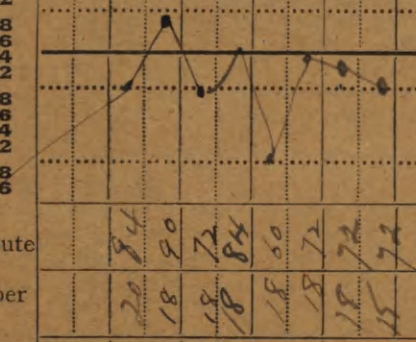 2
8
6
4
2
8
6
4
2
8
6
ute 84 90 72 84 60 72 72 72
per 20 18 18 18 18 18 18